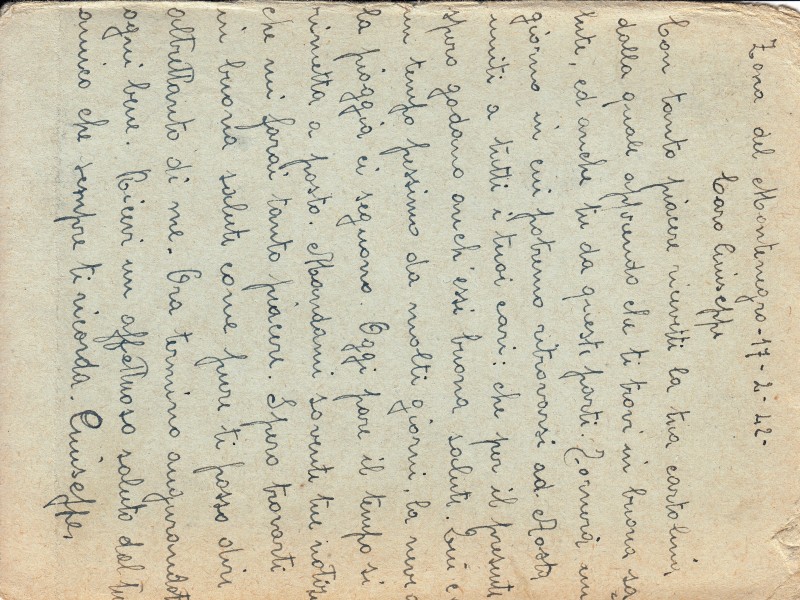 Zona del Montenegro - 17 - 2 - 42 -
Caro Giuseppe
Con tanto piacere ricevetti la tua cartolina
dalla quale apprendo che ti trovi in buona sa
lute, ed anche tu da queste parti. Tornerà un
giorno in cui potremo ritrovarsi ad Aosta
uniti a tutti i tuoi cari: che per il presente
spero godano anch'essi buona salute. Qui è
un tempo pessimo da molti giorni, la neve
la pioggia ci seguono. Oggi pare il tempo si
rimetta a posto. Mandami sovente tue notizie
che mi farai tanto piacere. Spero trovarti
in buona salute come pure ti posso dire
altrettanto di me. Ora termino augurandoti
ogni bene. Ricevi un affettuoso saluto dal tuo
amico che sempre ti ricorda. Giuseppe